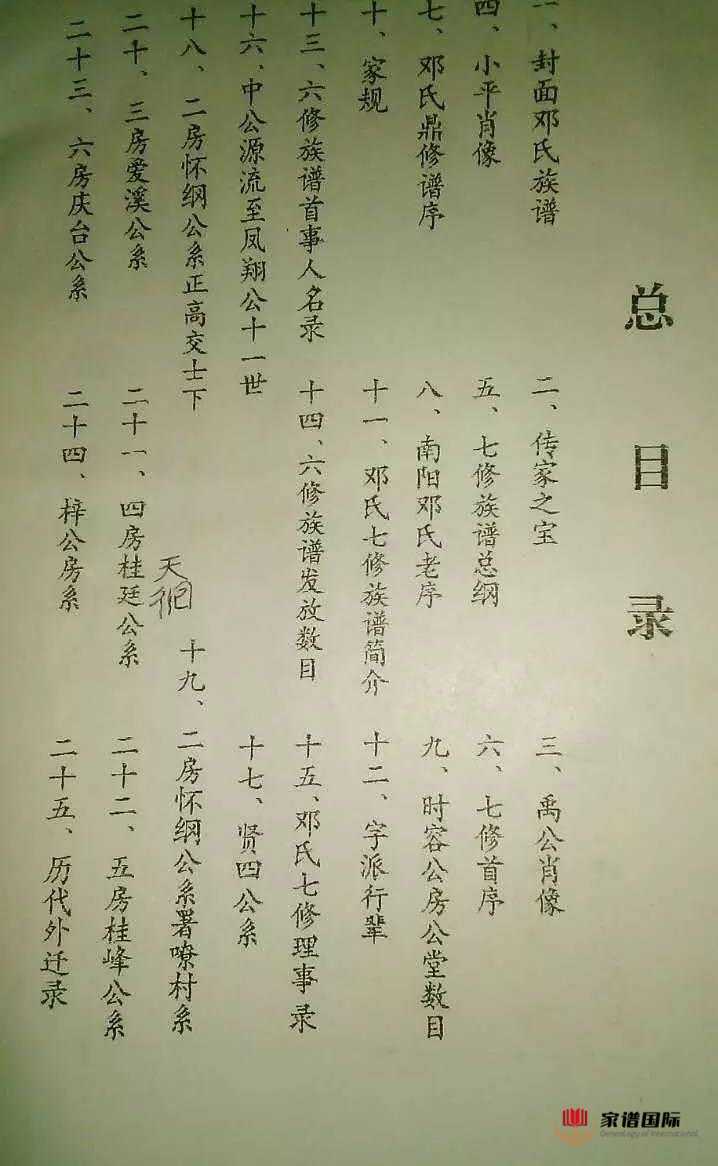 总目录
一、封面邓氏族谱
二、传家之宝
三、禹公肖像
四、小平肖像
五、七修族谱总纲
六、七修首序
七、邓氏鼎修谱序
八、南阳邓氏老序
九、时容公房公堂数目
十、家规
十一、邓氏七修族谱简介
十二、字派行辈
十三、六修族谱首事人名录
十四、六修族谱发放数目
十五、邓氏七修理事录
十六、中公源流至凤翔公十一世
十七、贤四公系
十八、二房怀纲公系正高交士下
天
十九、二房怀纲公系署嘹村系
二十、三房爱溪公系
二十一、四房桂廷公系
二十二、五房桂峰公系
二十三、六房庆台公系
二十四、梓公房系
二十五、历代外迁录
家谱国际
Genealogy of International